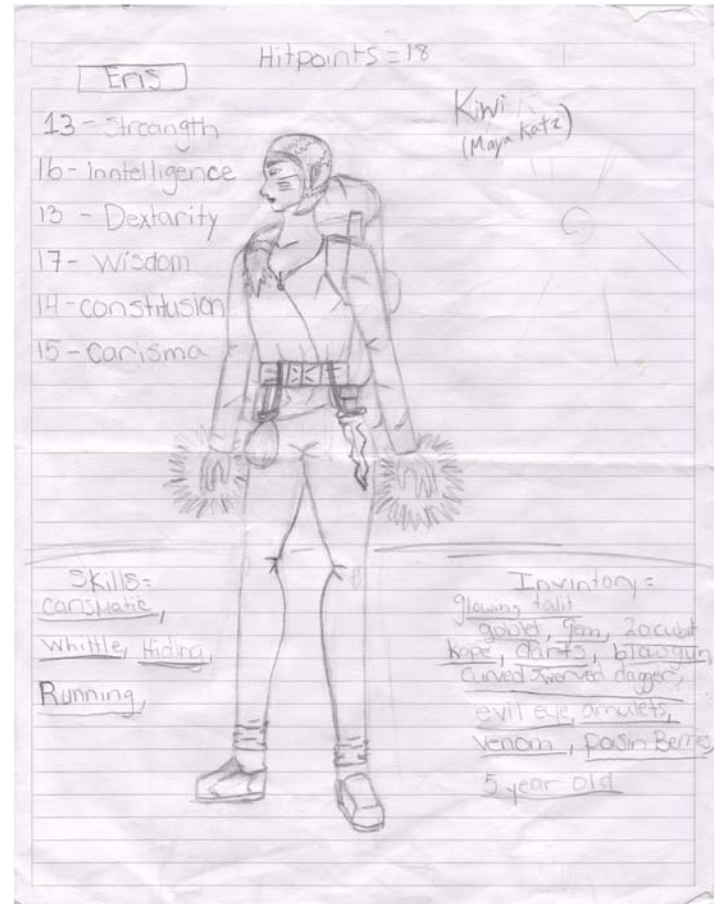 Hitpoints = 18
Eris
Kiwi
(Maya Katz)
13 - Streangth
16 - inntelligence
13 - Dextarity
17 - Wisdom
14 - constitusion
15 - carisma
Skills =
carismatic,
whittle, Hiding,
Running,
Invintory =
glowing talit
goblet, gem, 20 cubit
Rope, darts, blowgun,
curved dagger,
evil eye, amulets,
venom, poisin Berries
5 year old